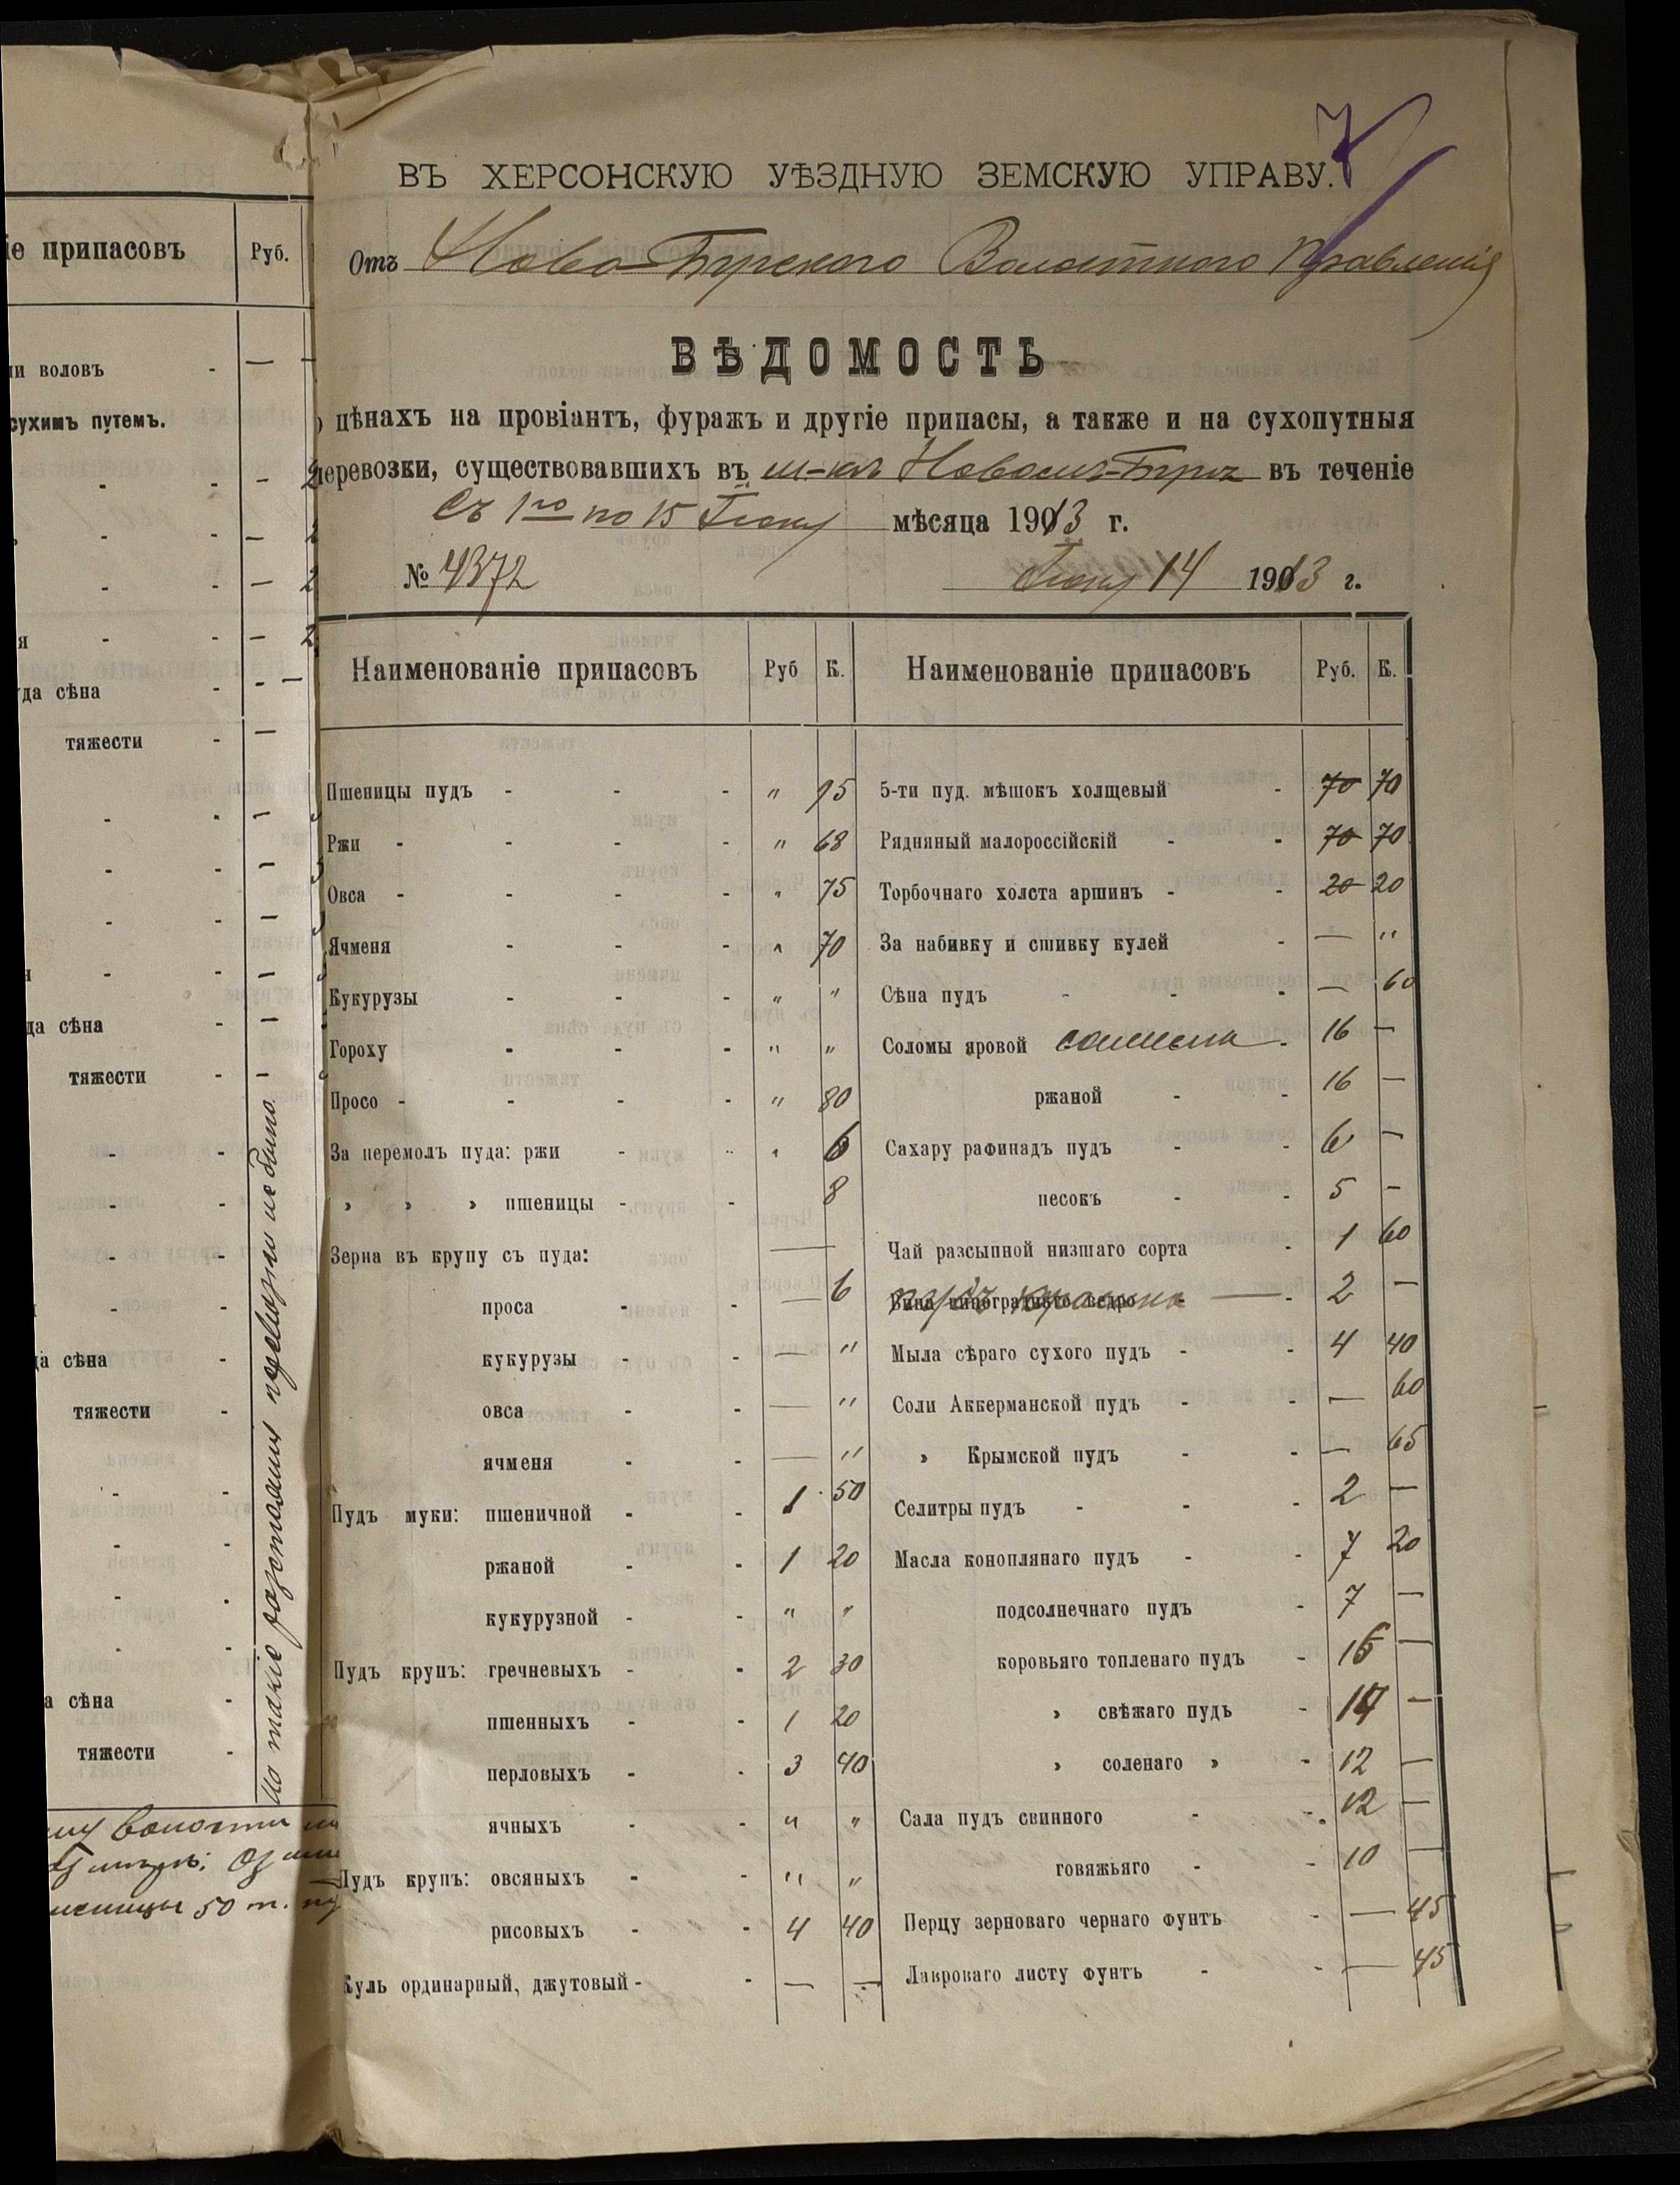 іе припасовъ Руб.
ли воловъ - —
сухимъ путемъ.
да сѣна
тяжести
да сѣна
тяжести
да сѣна
тяжести
а сѣна
тяжести
разстоянія перевозки не было
волости
50 т.
7
ВЪ ХЕРСОНСКУЮ УѢЗДНУЮ ЗЕМСКУЮ УПРАВУ.
Отъ Ново-Бугского Волостного Правленія
ВѢДОМОСТЬ
о цѣнахъ на провіантъ, фуражъ и другіе припасы, а также и на сухопутныя
перевозки, существовавшихъ въ м-кѣ Новомъ-Бугѣ въ теченіе
Съ 1го по 15 Іюня мѣсяца 1913 г.
№ 4372 Іюня 14 1913 г.
Наименованіе припасовъ Руб К. Наименованіе припасовъ Руб. К.
Пшеницы пудъ - - - " 95 5-ти пуд. мѣшокъ холщевый - 70 70
Ржи - - - - " 68 Рядняный малороссійскій - - 70 70
Овса - - - - " 75 Торбочнаго холста аршинъ - - 20 20
Ячменя - - - " 70 За набивку и сшивку кулей - — "
Кукурузы - - - " " Сѣна пудъ - - - — 60
Гороху - - - " " Соломы яровой сажень - 16 —
Просо - - - - " 80 ржаной - - 16 —
За перемолъ пуда: ржи - - " 6 Сахару рафинадъ пудъ - - 6 —
» » » пшеницы - - 8 песокъ - - 5 —
Зерна въ крупу съ пуда: — Чай разсыпной низшаго сорта - 1 60
проса - - — 6 Вина винограднаго ведро - — - 2 —
кукурузы - - — " Мыла сѣраго сухого пудъ - - 4 40
овса - - — " Соли Аккерманской пудъ - - — 60
ячменя - - — " » Крымской пудъ - - — 65
Пудъ муки: пшеничной - - 1 50 Селитры пудъ - - - 2 —
ржаной - - 1 20 Масла коноплянаго пудъ - - 7 20
кукурузной - - " " подсолнечнаго пудъ - 7 —
Пудъ крупъ: гречневыхъ - - 2 30 коровьяго топленаго пудъ - 16 —
пшенныхъ - - 1 20 » свѣжаго пудъ - 14 —
перловыхъ - - 3 40 » соленаго » - 12 —
ячныхъ - - " " Сала пудъ свинного - - 12 —
Пудъ крупъ: овсяныхъ - - " " говяжьяго - - 10 —
рисовыхъ - - 4 40 Перцу зерноваго чернаго фунтъ - — 45
Куль ординарный, джутовый - - — — Лавроваго листу фунтъ - - — 45